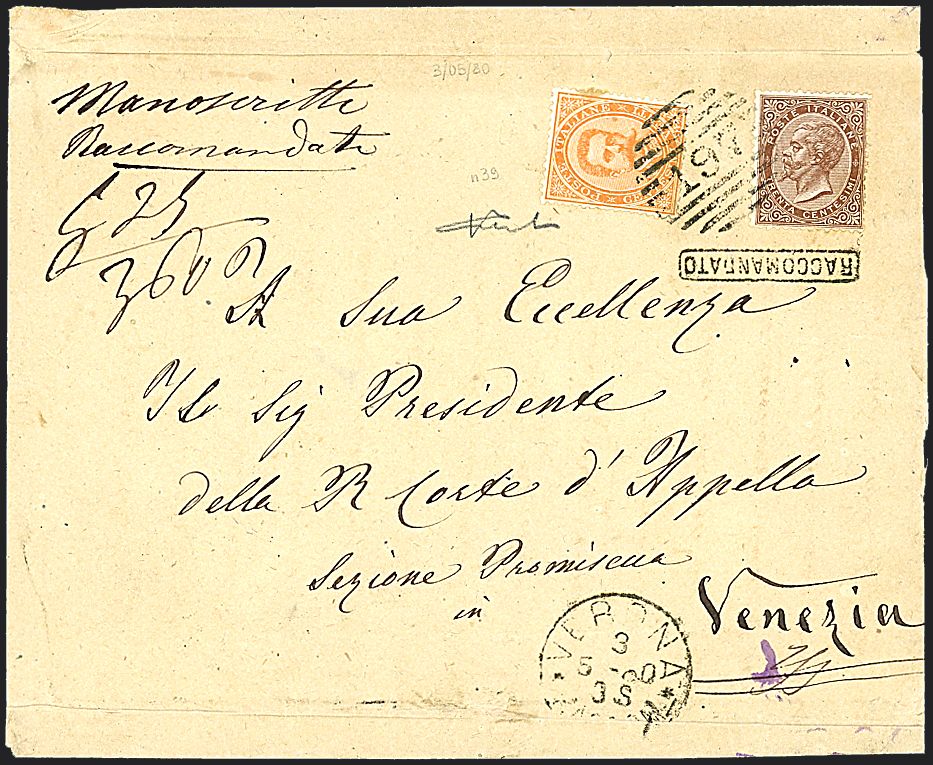 3/05/80
Manoscritti
Raccomandate
POSTE ITALIANE
197
POSTE ITALIANE
TRENTA CENTESIMI
n39
RACCOMANDATO
360
A Sua Eccellenza
Il Sig Presidente
della R Corte d'Appello
Sezione Promiscua
in
Venezia
VERONA
3
5 - 80